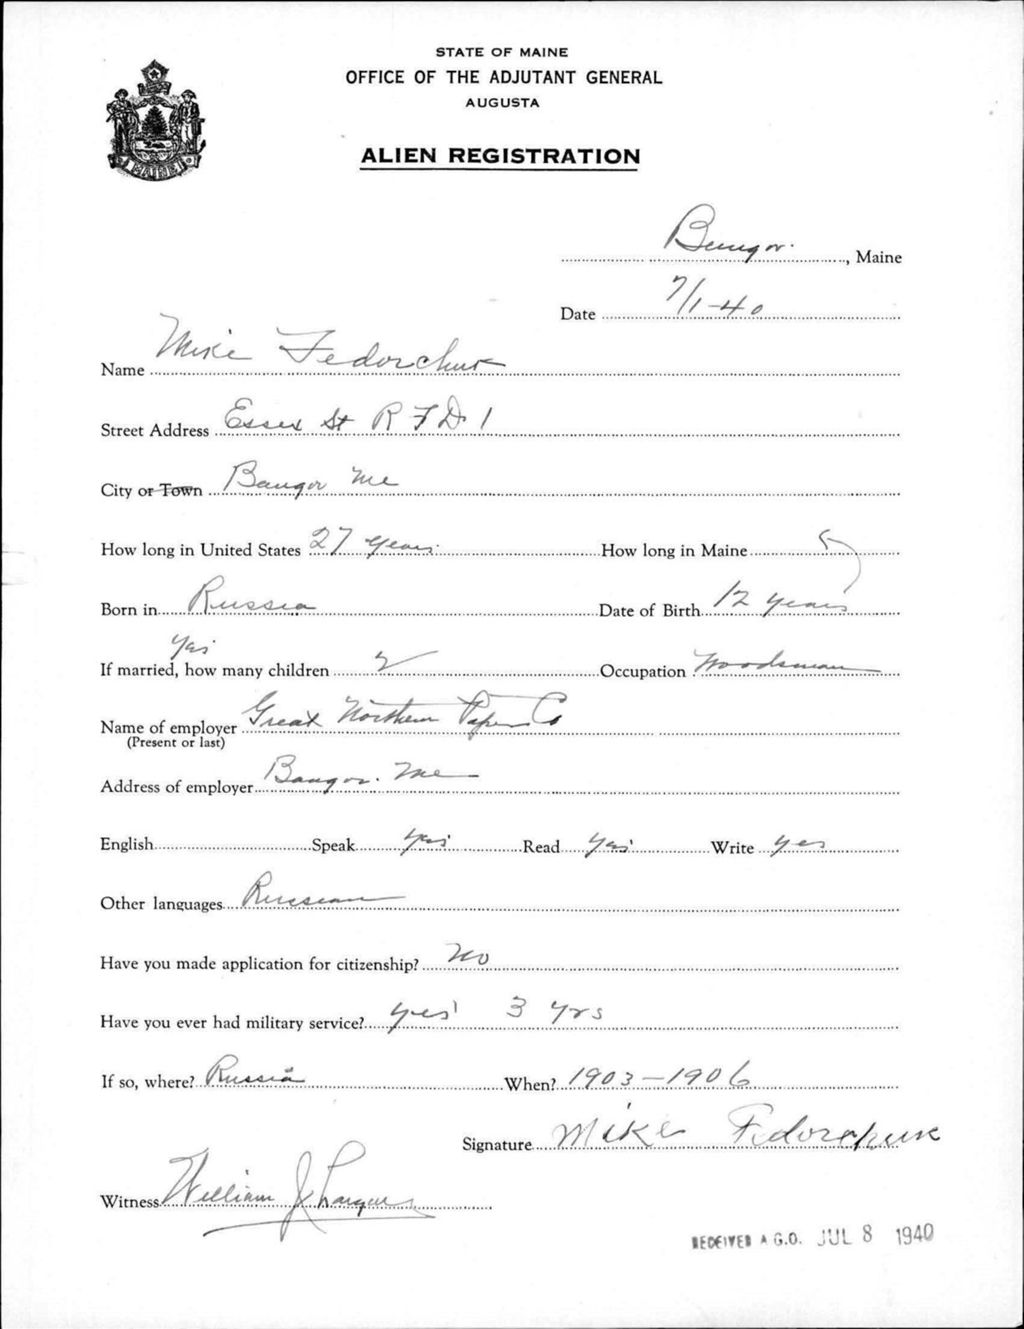 STATE OF MAINE
OFFICE OF THE ADJUTANT GENERAL
AUGUSTA
ALIEN REGISTRATION
MAINE
Bangor, Maine
Date 7/1-40
Name Mike Fedorchuk
Street Address Essex St R F D 1
City or Town Bangor Me
How long in United States 27 years How long in Maine
Born in Russia Date of Birth 12 years
Yes
If married, how many children 2 Occupation Woodsman
Name of employer Great Northern Paper Co
(Present or last)
Address of employer Bangor. Me
English Speak yes Read yes Write yes
Other languages Russian
Have you made application for citizenship? No
Have you ever had military service? yes 3 yrs
If so, where? Russia When? 1903-1906
Signature Mike Fedorchuk
Witness William J
RECEIVED A.G.O. JUL 8 1940